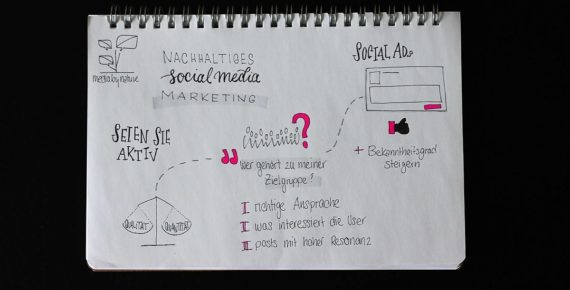 mediabynature
NACHHALTIGES
social media
MARKETING
SOCIAL ADs
SEIEN SIE
AKTIV
QUALITÄT
QUANTITÄT
?
Wer gehört zu meiner
Zielgruppe?
I richtige Ansprache
II was interessiert die User
III posts mit hoher Resonanz
+ Bekanntheitsgrad
steigern